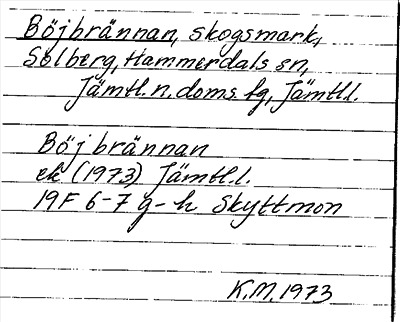 Böjbrännan, skogsmark,
Solberg, Hammerdals sn,
Jämtl.n.doms.fg, Jämtl.l.
Böjbrännan
ek (1973) Jämtl.l.
19F 6-7 g-h Skyttmon
K.M. 1973